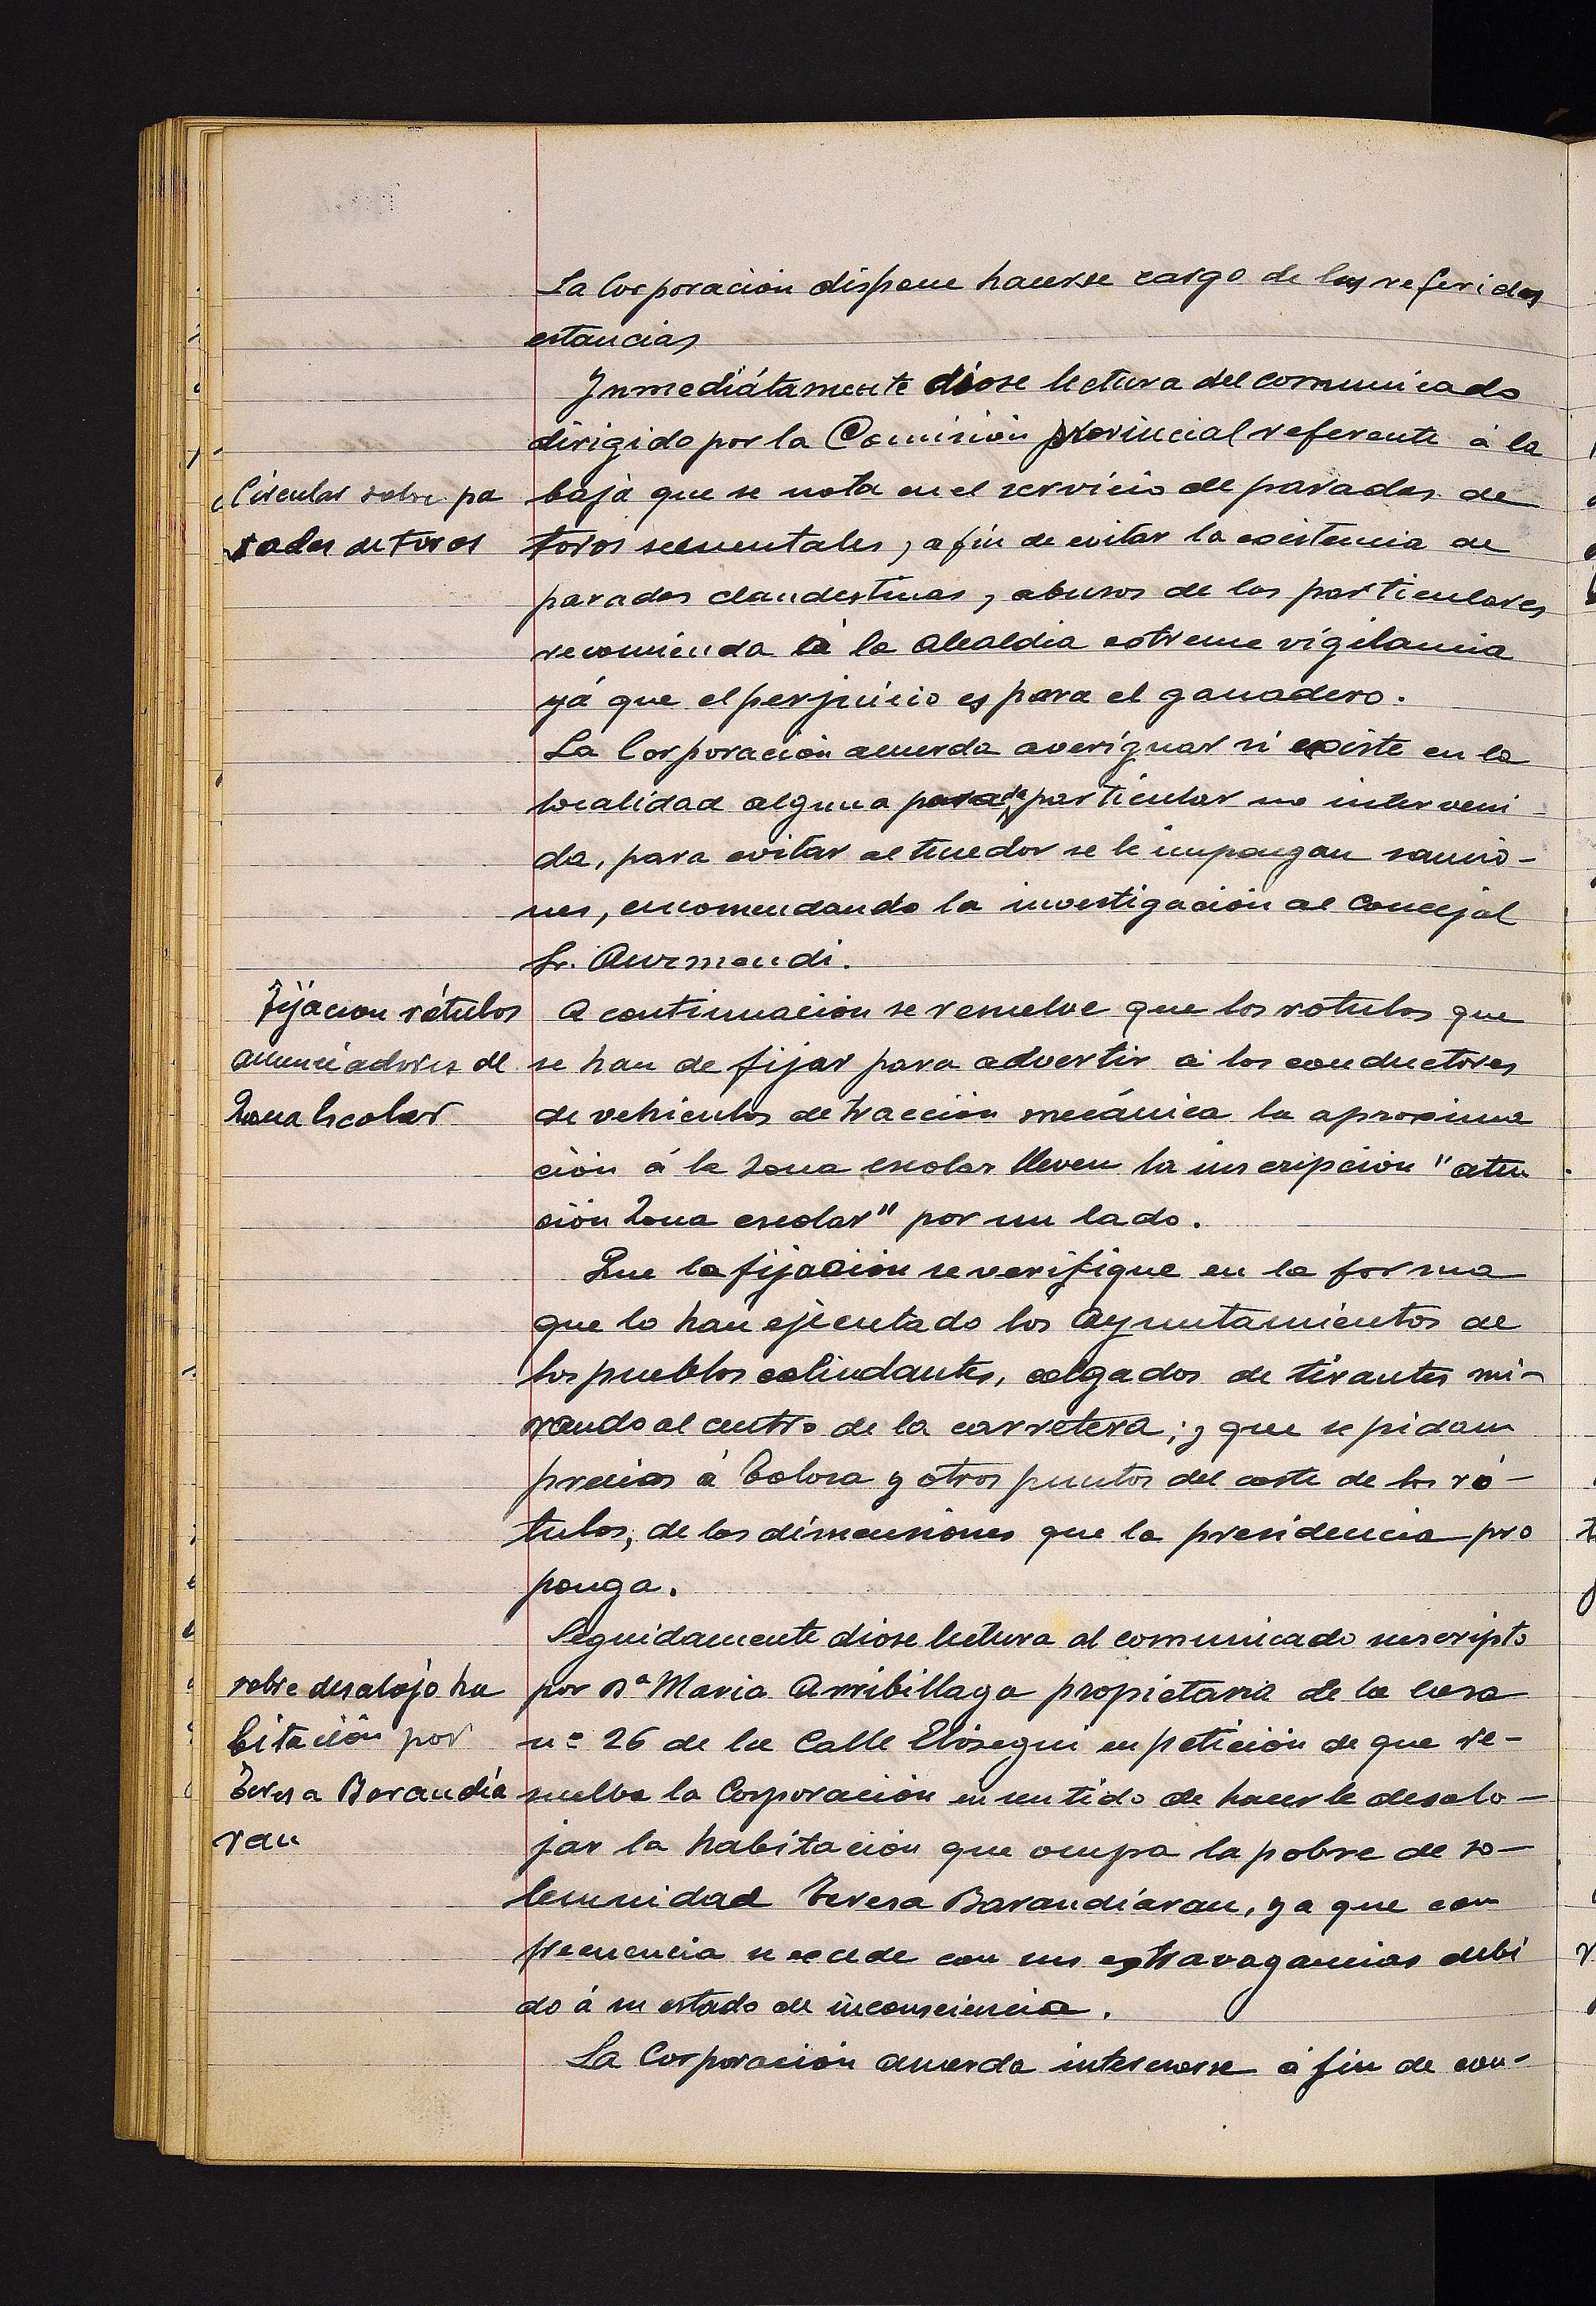 La Corporación dispone hacerse cargo de las referidas
estancias
Inmediátamente diose lectura del comunicado
dirigido por la Comisión provincial referente á la
Circular sobre pa
baja que se nota en el servicio de paradas de
radas de toros
toros sementales, a fin de evitar la existencia de
paradas clandestinas, abusos de los particulares
recomienda á la Alcaldia extreme vigilancia
yá que el perjuicio es para el ganadero.
La Corporación acuerda averiguar si existe en la
localidad alguna parada particular no interveni
da, para evitar al tenedor se le impongan sancio-
nes, encomendando la investigación al Concejal
Sr. Aurmendi.
Fijacion rótulos
A continuación se resuelve que los rotulos que
anunciadores de
se han de fijar para advertir á los conductores
Zona Escolar
de vehiculos de tracción mecánica la aproxima
ción á la zona escolar lleven la inscripción "aten
ción Zona escolar" por un lado.
Que la fijación se verifique en la forma
que lo han ejecutado los Ayuntamientos de
los pueblos colindantes, colgados de tirantes mi-
rando al centro de la carretera; y que se pidan
precios á Tolosa y otros puntos del coste de los ró-
tulos, de las dimensiones que la presidencia pro
ponga.
Seguidamente diose lectura al comunicado suscripto
sobre desalojo ha
por Dª Maria Arribillaga propietaria de la casa
bitación por
nº 26 de la Calle Elósegui en petición de que re-
Teresa Barandia
suelva la Corporación en sentido de hacerle desalo-
ran
jar la habitación que ocupa la pobre de so-
lemnidad Teresa Barandiaran, ya que con
frecuencia se excede con sus extravagancias debi
do á su estado de inconsciencia.
La Corporación acuerda interesarse á fin de con-